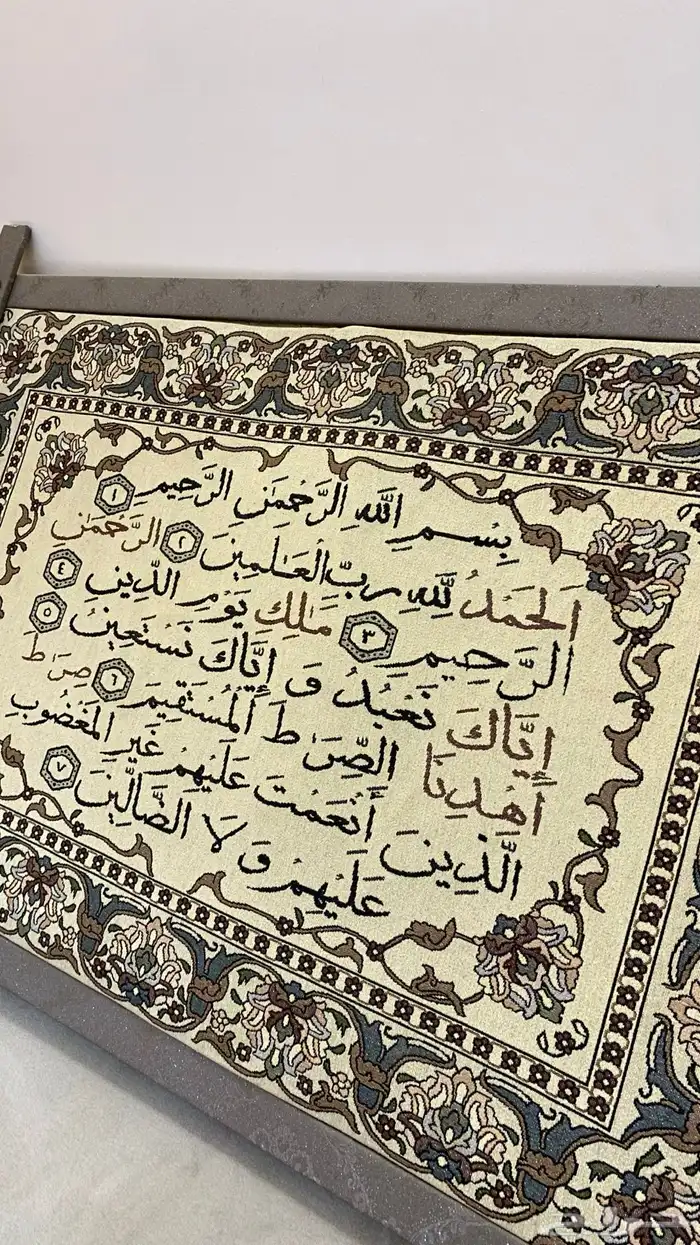 بِسْمِ اللَّهِ الرَّحْمَٰنِ الرَّحِيمِ ١
اَلْحَمْدُ لِلَّهِ رَبِّ الْعَٰلَمِينَ ٢ الرَّحْمَٰنِ
الرَّحِيمِ ٣ مَٰلِكِ يَوْمِ الدِّينِ ٤
إِيَّاكَ نَعْبُدُ وَ إِيَّاكَ نَسْتَعِينُ ٥
اَهْدِنَا الصِّرَٰطَ الْمُسْتَقِيمَ ٦ صِرَٰطَ
الَّذِينَ أَنْعَمْتَ عَلَيْهِمْ غَيْرِ الْمَغْضُوبِ
عَلَيْهِمْ وَ لَا الضَّالِّينَ ٧